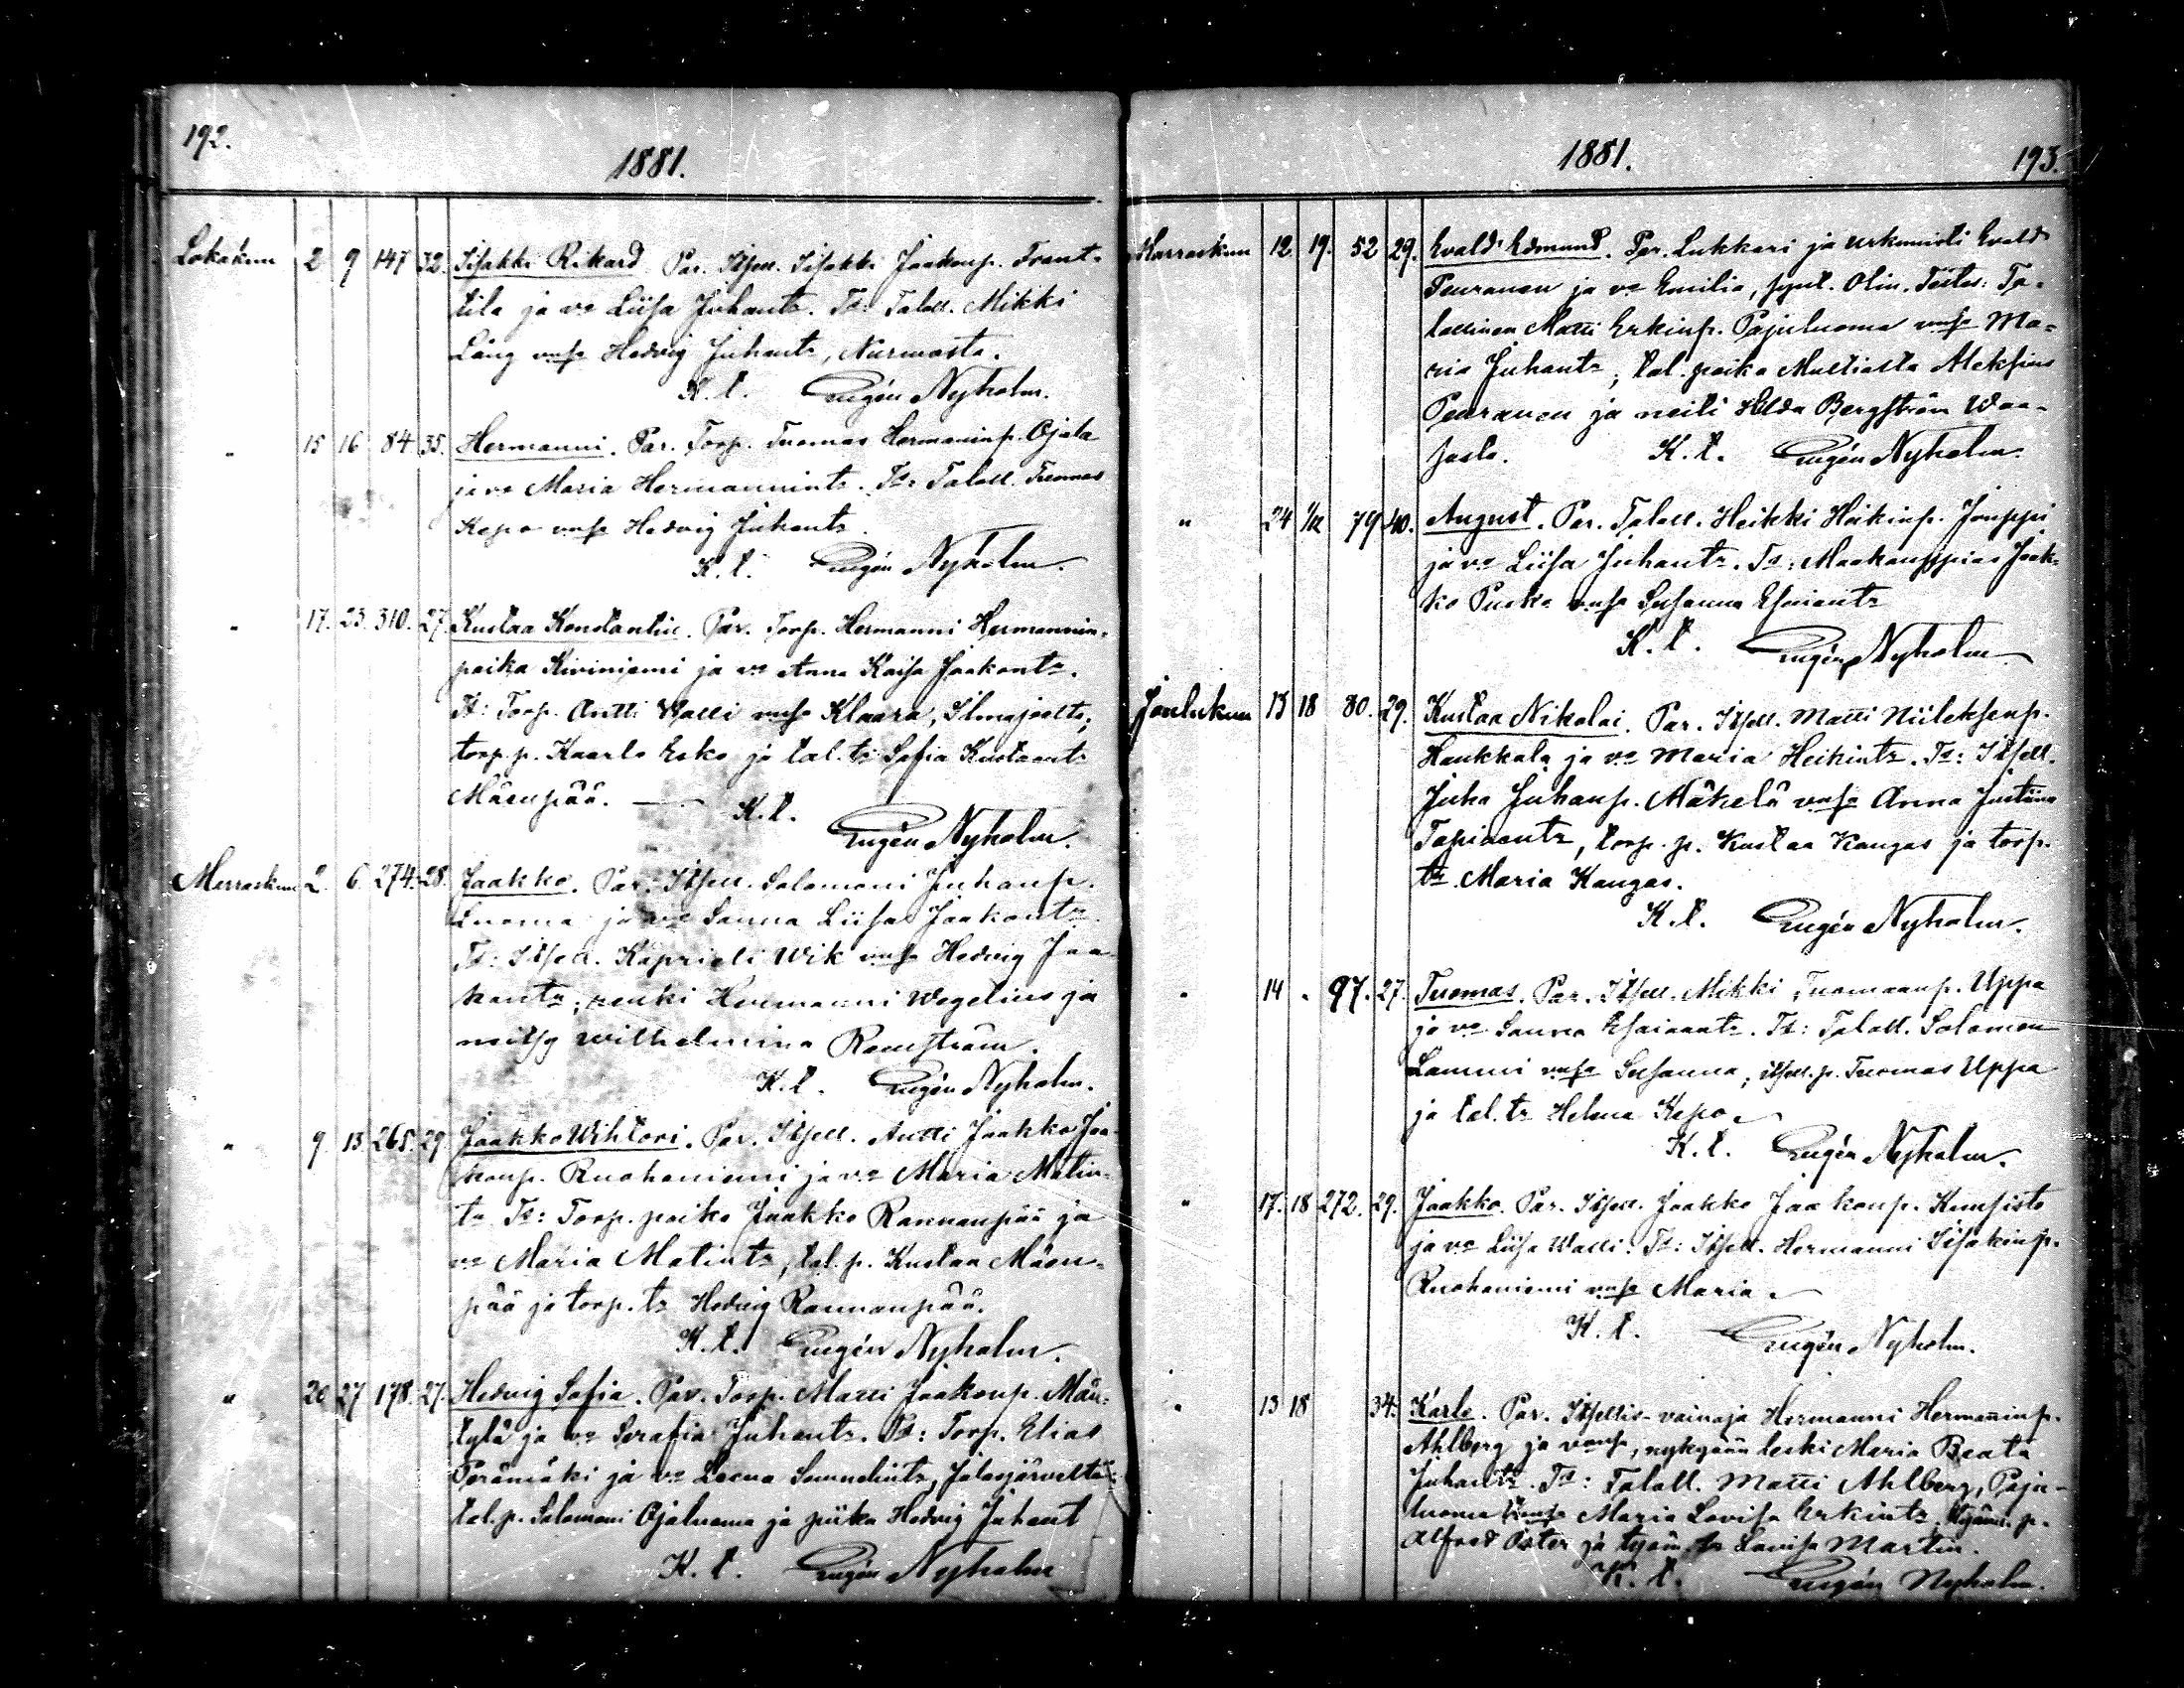 192.
1881.
Lokakuu 2 9 147 32. Iisakki Rikard. Par. Itsell. Iisakki Jaakonp. Frant-
tila ja vo Liisa Juhantr. Td: Taloll. Mikki
Lång vmsa Hedvig Juhantr, Nurmosta.
K. t. Eugén Nyholm.
" 15 16 84. 35. Hermanni. Par. Torp. Tuomas Hermaninp. Ojala
ja vo Maria Hermannintr. Td: Taloll. Tuomas
Kepo vmsa Hedvig Juhantr.
K. t. Eugén Nyholm.
" 17. 23. 310. 27. Kustaa Konstantin. Par. Torp. Hermanni Hermannin-
poika Kiviniemi ja vo Anna Kaisa Jaakontr.
Td: Torp. Antti Walli vmsa Klaara, Ilmajoelta;
torp. p. Kaarlo Esko ja tal. tr Sofia Kustaantr
Mäenpää. K. t.
Eugén Nyholm.
Marraskuu 2. 6. 274. 28. Jaakko. Par. Itsell. Salomoni Juhanp.
Luoma ja vo Sanna Liisa Jaakontr.
Td: Itsell. Kaprieli Wik vmsa Hedvig Jaa-
kontr; renki Hermanni Wegelius ja
neitsy Wilhelmina Romström.
K. t. Eugén Nyholm.
" 9. 13 265. 29 Jaakko Wihtori. Par. Itsell. Antti Jaakko Jaa-
konp. Ruohoniemi ja vo Maria Matin-
tr. Td: Torp. poika Jaakko Rannanpää ja
vo Maria Matintr, tal. p. Kustaa Mäen-
pää ja torp. tr Hedvig Rannanpää.
K. t. Eugén Nyholm.
" 20 27 178. 27. Hedvig Sofia. Par. Torp. Matti Jaakonp. Män-
tylä ja vo Serafia Juhantr. Td: Torp. Elias
Perämäki ja vo Leena Samuelintr, Jalasjärveltä;
tal. p. Salomoni Ojaluoma ja piika Hedvig Juhant
K. t. Eugén Nyholm
1881. 193.
Marraskuu 12. 19. 52 29. Evald Edmund. Par. Lukkari ja urkunisti Evald
Peuranen ja vo Emilia, synt. Olin. Testes: Ta-
lollinen Matti Erkinp. Pajuluoma vmsa Ma-
ria Juhantr; tal. poika Mustialta Aleksius
Peuranen ja neiti Hilda Bergström Waa-
sasta. K. t. Eugén Nyholm.
" 24 1/12 79 40. August. Par. Taloll. Heikki Heikinp. Jouppi
ja vo Liisa Juhantr. Td: Maakauppias Jaak-
ko Puska vmsa Susanna Esaiantr
K. t. Eugén Nyholm.
Joulukuu 13 18 80. 29. Kustaa Nikolai. Par. Itsell. Matti Niileksenp.
Haukkala ja vo Maria Heikintr. Td: Itsell.
Juha Juhanp. Mäkelä vmsa Anna Justiina
Tapiaantr, torp. p. Kustaa Kangas ja torp.
tr. Maria Kangas.
K. t. Eugén Nyholm.
" 14 " 97. 27. Tuomas. Par. Itsell. Mikki Tuomaanp. Uppa
ja vo Sanna Esaiaantr. Td: Taloll. Salomon
Lammi vmsa Susanna; itsell. p. Tuomas Uppa
ja tal. tr Helena Kepo.
K. t. Eugén Nyholm.
" 17. 18 272. 29. Jaakko. Par. Itsell. Jaakko Jaakonp. Kumpisto
ja vo Liisa Walli. Td: Itsell. Hermanni Iisakinp.
Ruohoniemi vmsa Maria.
K. t. Eugén Nyholm.
" 13 18 34. Karlo. Par. Itsellis-vainaja Hermanni Hermanninp.
Ahlberg ja vmsa, nykyään leski Maria Beata
Juhantr. Td: Taloll. Matti Ahlberg, Paju-
luoma vmsa Maria Lovisa Erkintr. Työm. p.
Alfred Öster ja työm. tr Lovisa Martin.
K. t. Eugén Nyholm.